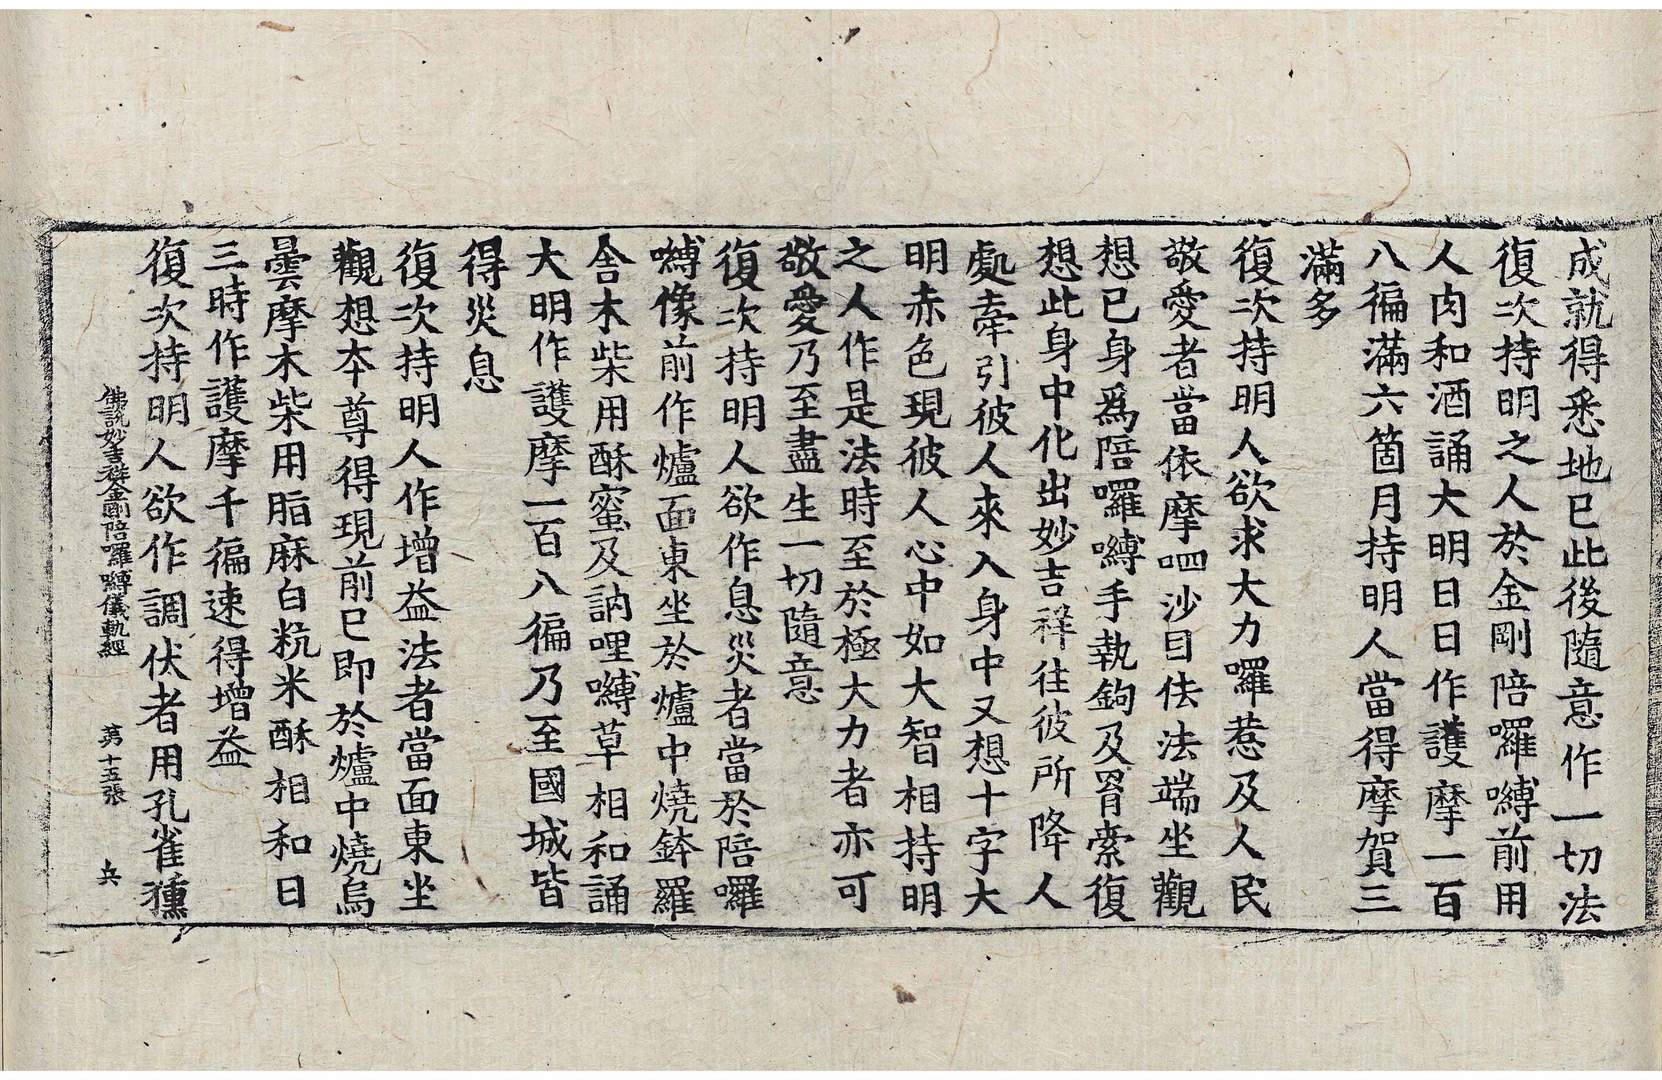 成就得悉地已此後隨意作一切法
復次持明之人於金剛陪囉嚩前用
人肉和酒誦大明日日作護摩一百
八徧滿六箇月持明人當得摩賀三
滿多
復次持明人欲求大力囉惹及人民
敬愛者當依摩呬沙目佉法端坐觀
想已身爲陪囉嚩手執鉤及罥索復
想此身中化出妙吉祥往彼所降人
處牽引彼人來入身中又想十字大
明赤色現彼人心中如大智相持明
之人作是法時至於極大力者亦可
敬愛乃至盡生一切隨意
復次持明人欲作息災者當於陪囉
嚩像前作爐面東坐於爐中燒鉢羅
舍木柴用酥蜜及訥哩嚩草相和誦
大明作護摩一百八徧乃至國城皆
得災息
復次持明人作增益法者當面東坐
觀想本尊得現前已即於爐中燒烏
曇摩木柴用脂麻白粇米酥相和日
三時作護摩千徧速得增益
復次持明人欲作調伏者用孔雀獯
佛說妙吉祥金剛陪囉嚩儀軌經　第十五張　兵